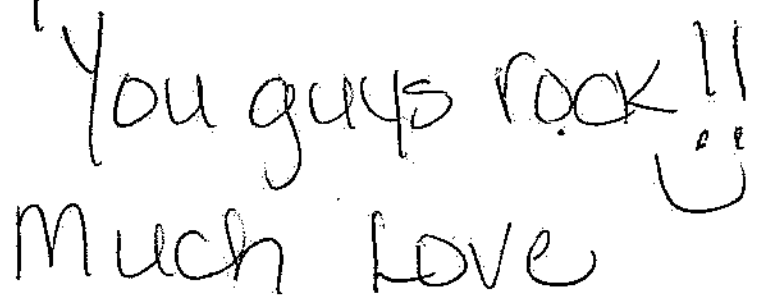 You guys rock!!
Much Love